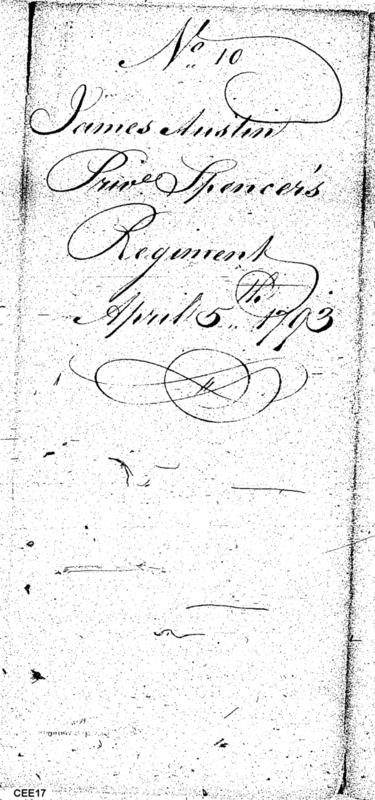 No 10
James Austin
Prive Spencer's
Regiment
April 5th 1793
CEE17